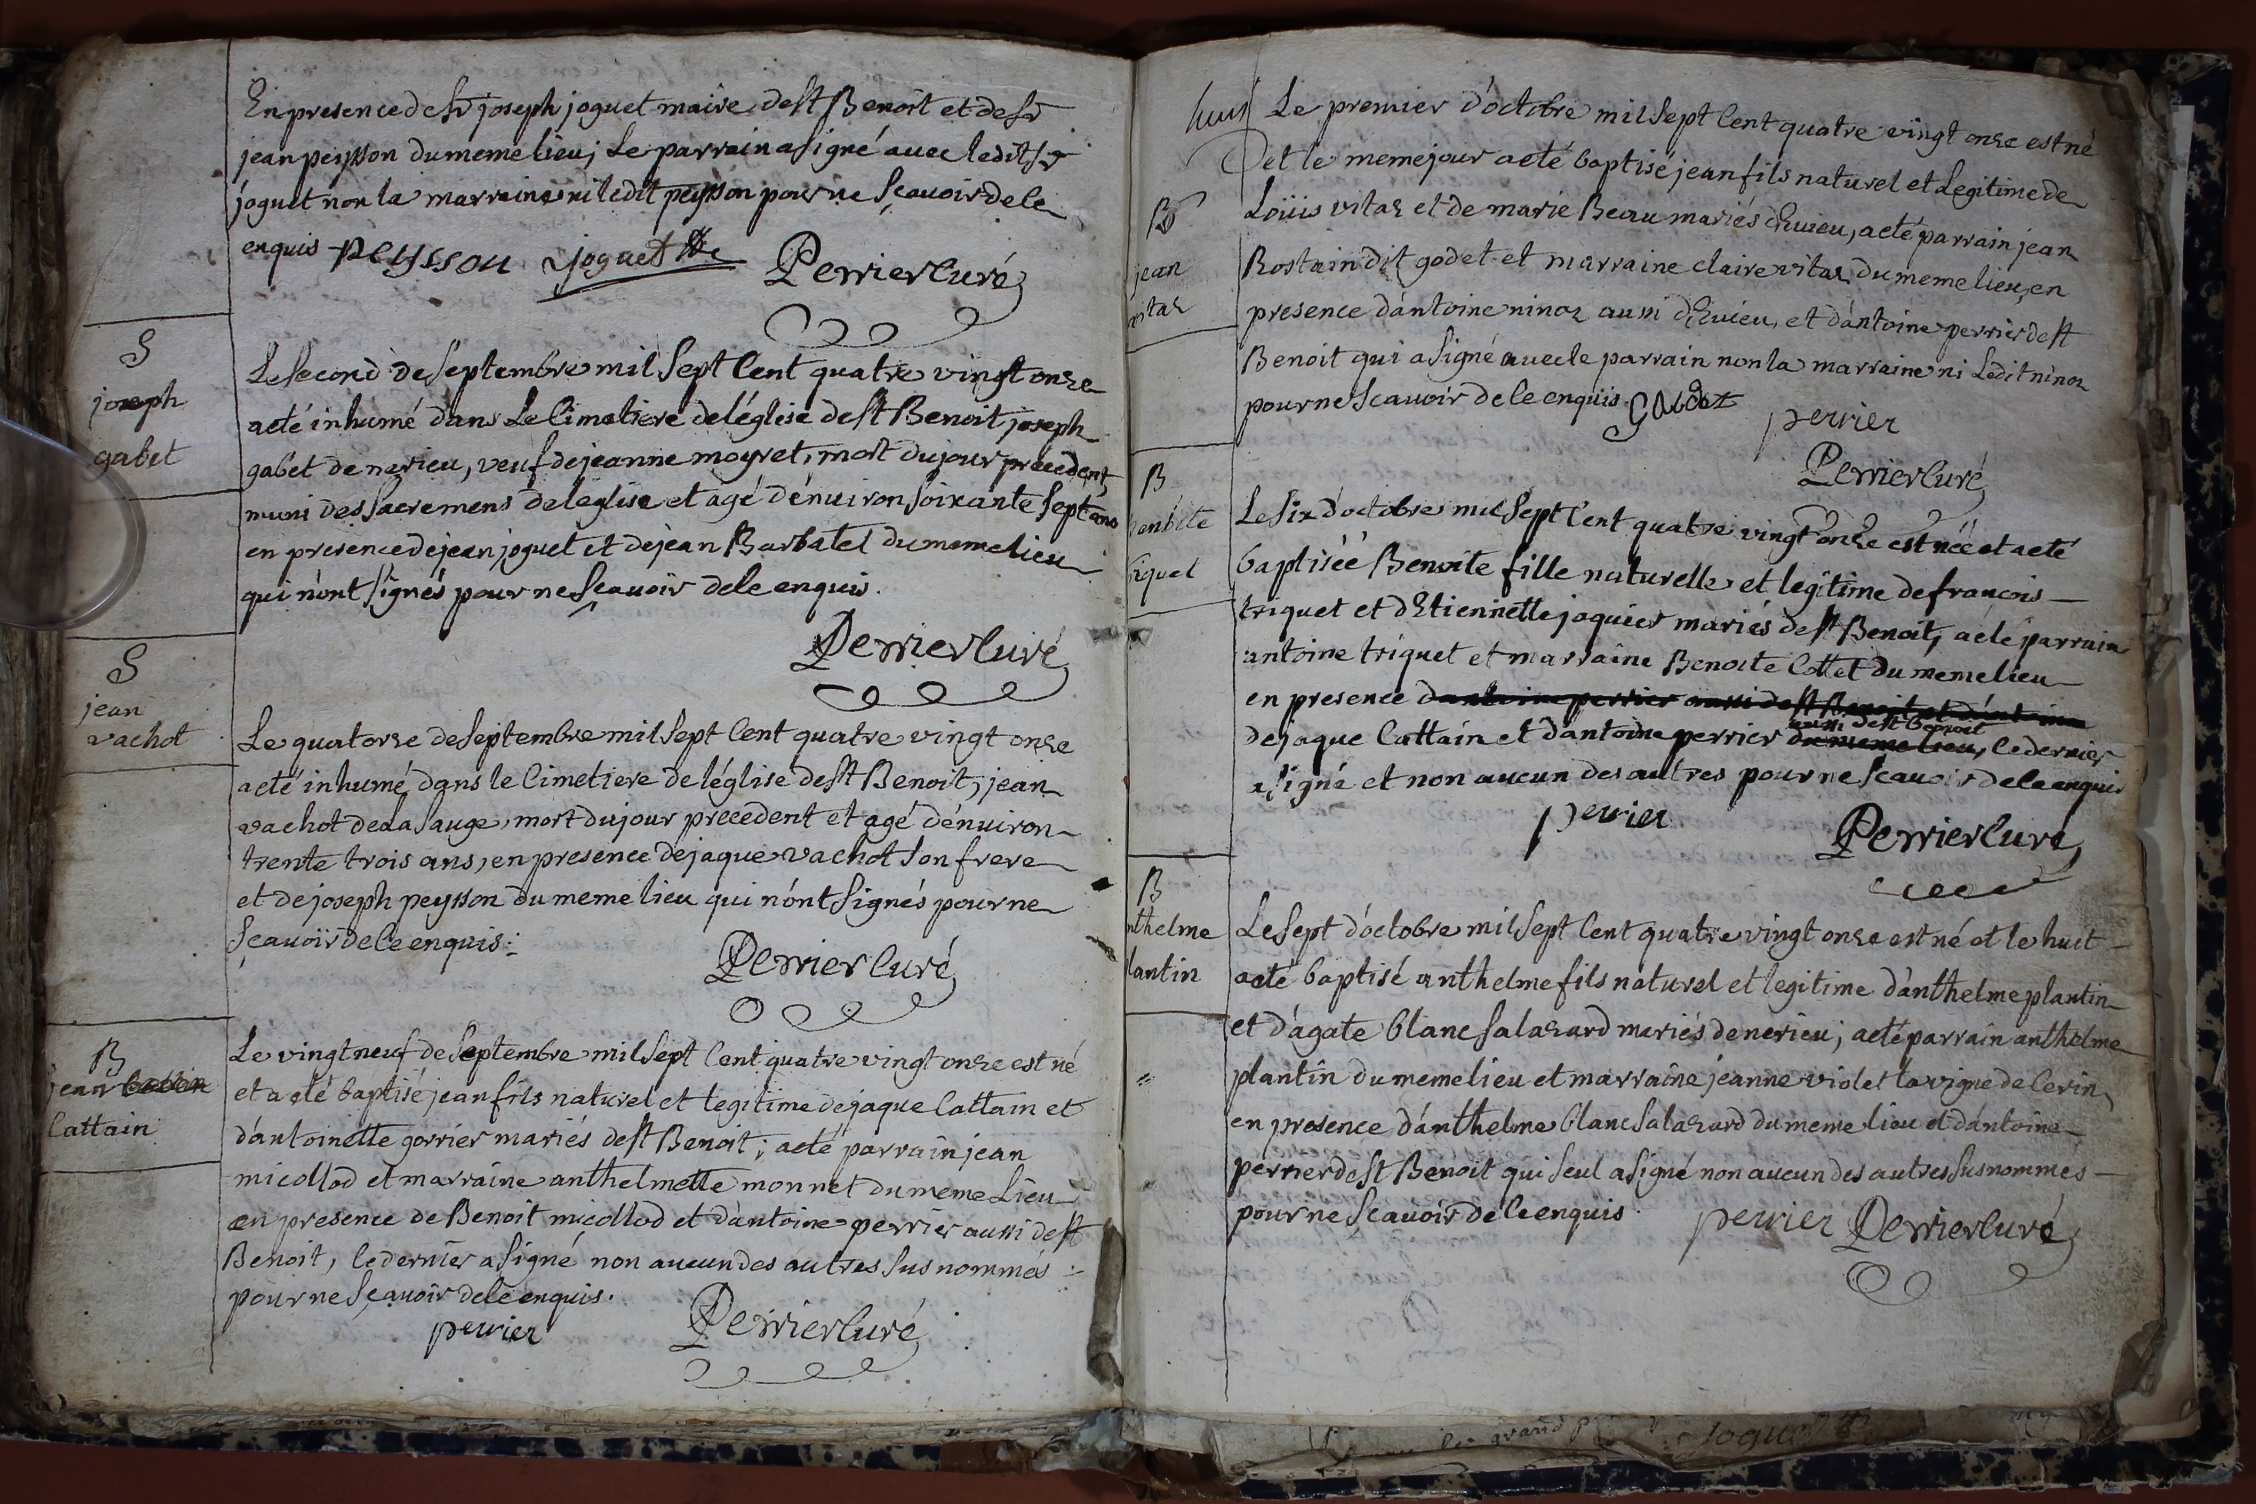 En presence de sr joseph joguet maire de st Benoit et de sr
jean peysson du meme lieu; Le parrain a signé avec ledit sr
joguet non la marraine ni ledit peysson pour ne sçavoir de ce
enquis PEYSSON joguet Perrier Curé
S
joseph
gabet
Le second de septembre mil sept Cent quatre vingt onze
a eté inhumé dans Le Cimetiere de l'église de st Benoit joseph
gabet de nerieu, veuf de jeanne moyret, mort du jour precedent,
muni des sacremens de leglise et agé d'enuiron soixante sept ans
en presence de jean joguet et de jean Barbatel du meme lieu
qui n'ont signés pour ne sçauoir de ce enquis.
Perrier Curé
S
jean
vachot
Le quatorze de septembre mil sept Cent quatre vingt onze
a eté inhumé dans le Cimetiere de l'église de st Benoit, jean
vachot de La sauge, mort du jour precedent et agé d'enuiron
trente trois ans, en presence de jaque vachot son frere
et de joseph peysson du meme lieu qui n'ont signés pour ne
sçauoir de ce enquis.
Perrier Curé
B
jean
Cattain
Le vingt neuf de septembre mil sept Cent quatre vingt onze est né
et a eté baptisé jean fils naturel et legitime de jaque Cattain et
d'antoinette gorrier mariés de st Benoit; a eté parrain jean
micollod et marraine anthelmette monnet du meme Lieu
en presence de Benoit micollod et d'antoine perrier aussi de st
Benoit, le dernier a signé non aucun des autres sus nommés
pour ne sçauoir de ce enquis.
perrier Perrier Curé
huit Le premier d'octobre mil sept Cent quatre vingt onze est né
et le meme jour a eté baptisé jean fils naturel et Legitime de
B
jean
vitaz
Loüis vitaz et de marie Beau mariés d'Evieu, a eté parrain jean
Rostain dit godet et marraine claire vitaz du meme lieu, en
presence d'antoine ninoz aussi d'Evieu, et d'antoine perrier de st
Benoit qui a signé avec le parrain non la marraine ni Ledit ninoz
pour ne scauoir de ce enquis. Godet
perrier
Perrier Curé
B
benoite
triquet
Le six d'octobre mil sept Cent quatre vingt onze est néé et a eté
baptiséé Benoite fille naturelle et legitime de françois
triquet et d'Etiennette joquier mariés de st Benoit, a eté parrain
antoine triquet et marraine Benoite Cottet du meme lieu
en presence d'antoine perrier aussi de st Benoit et d'antoine
aussi de st benoit
de jaque Cattain et d'antoine perrier du meme lieu, le dernier
a signé et non aucun des autres pour ne scauoir de ce enquis
perrier Perrier Curé
B
nthelme
lantin
Le sept d'octobre mil sept Cent quatre vingt onze est né et le huit
a eté baptisé anthelme fils naturel et legitime d'anthelme plantin
et d'agate blanc salazard mariés de nerieu; a eté parrain anthelme
plantin du meme lieu et marraine jeanne violet la vigne de Cerin,
en presence d'anthelme blanc salazard du meme lieu et d'antoine
perrier de st Benoit qui seul a signé non aucun des autres sus nommés
pour ne sçauoir de ce enquis. perrier Perrier Curé